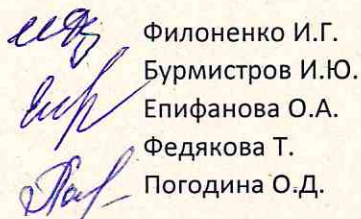 Филоненко И.Г.
Бурмистров И.Ю.
Епифанова О.А.
Федякова Т.
Погодина О.Д.